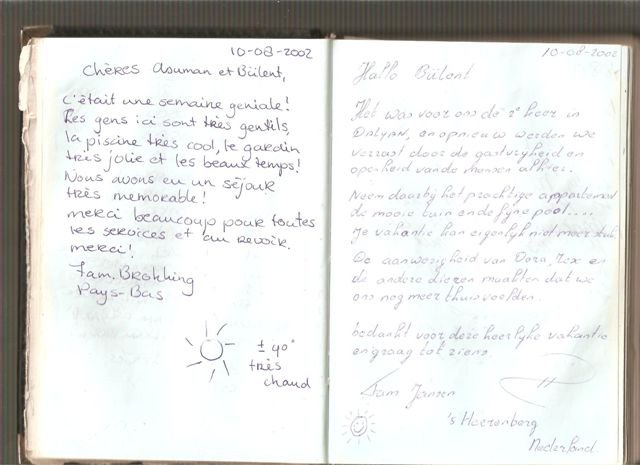 10-08-2002
Chères Asuman et Bülent,
C'était une semaine geniale!
Les gens ici sont très gentils,
la piscine très cool, le gardin
très jolie et les beaux temps!
Nous avons eu un séjour
très memorable!
merci beaucoup pour toutes
les services et au revoir.
merci!
Fam. Brokking
Pays-Bas
± 40°
très
chaud
10-08-2002
Hallo Bülent
Het was voor ons de 2e keer in
DALYAN, en opnieuw werden we
verrast door de gastvrijheid en
openheid van de mensen alhier.
Neem daarbij het prachtige appartement
de mooie tuin en de fijne pool....
Je vakantie kan eigenlijk niet meer stuk
De aanwezigheid van Dora, Rex en
de andere dieren maakten dat we
ons nog meer thuis voelden.
bedankt voor deze heerlijke vakantie
en graag tot ziens.
Fam Jansen
's Heerenberg
Nederland.